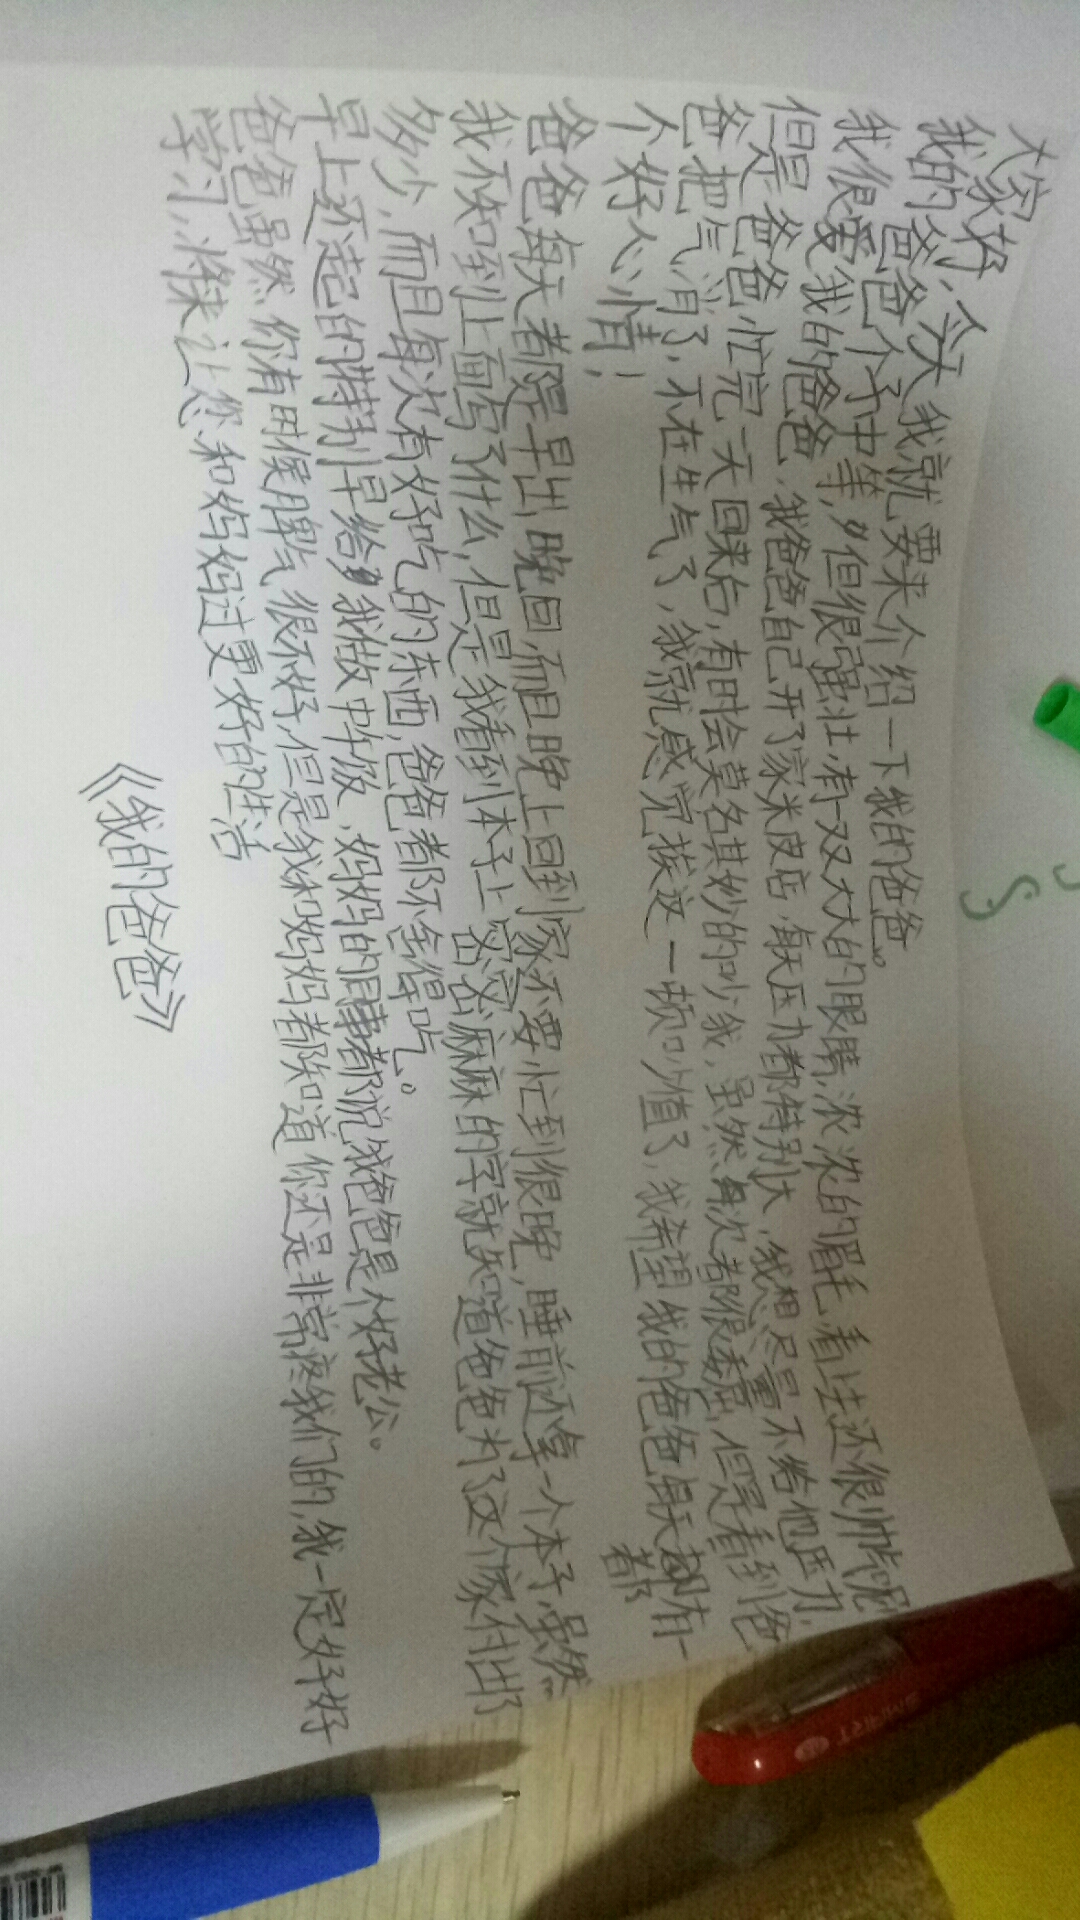 大家好，今天我就要来介绍一下我的爸爸。
我的爸爸个子中等，但很强壮，有一双大大的眼睛，浓浓的眉毛，看上去还很帅气呢
我很爱我的爸爸、我爸爸自己开了家米皮店，每天压力都特别大，我想尽量不给他压力，
但是爸爸忙完一天回来后，有时会莫名其妙的吵我，虽然每次都很委屈，但是看到爸
爸把气消了，不在生气了，我就感觉挨这一顿吵值了，我希望我的爸爸每天都有一
都
个好心情，
爸爸每天都是早出晚回，而且晚上回到家不要忙到很晚，睡前还拿一个本子，虽然
我不知到上面写了什么，但是我看到本子上密密麻麻的字就知道爸爸为了这个家付出了
多少，而且每次有好吃的东西，爸爸都不舍得吃。
早上还起的特别早给我做中午饭、妈妈的同事都说我爸爸是个好老公。
爸爸虽然你有时侯脾气很不好，但是我和妈妈都知道你还是非常疼我们的，我一定好好
学习，将来让您和妈妈过更好的生活
《我的爸爸》
SMART